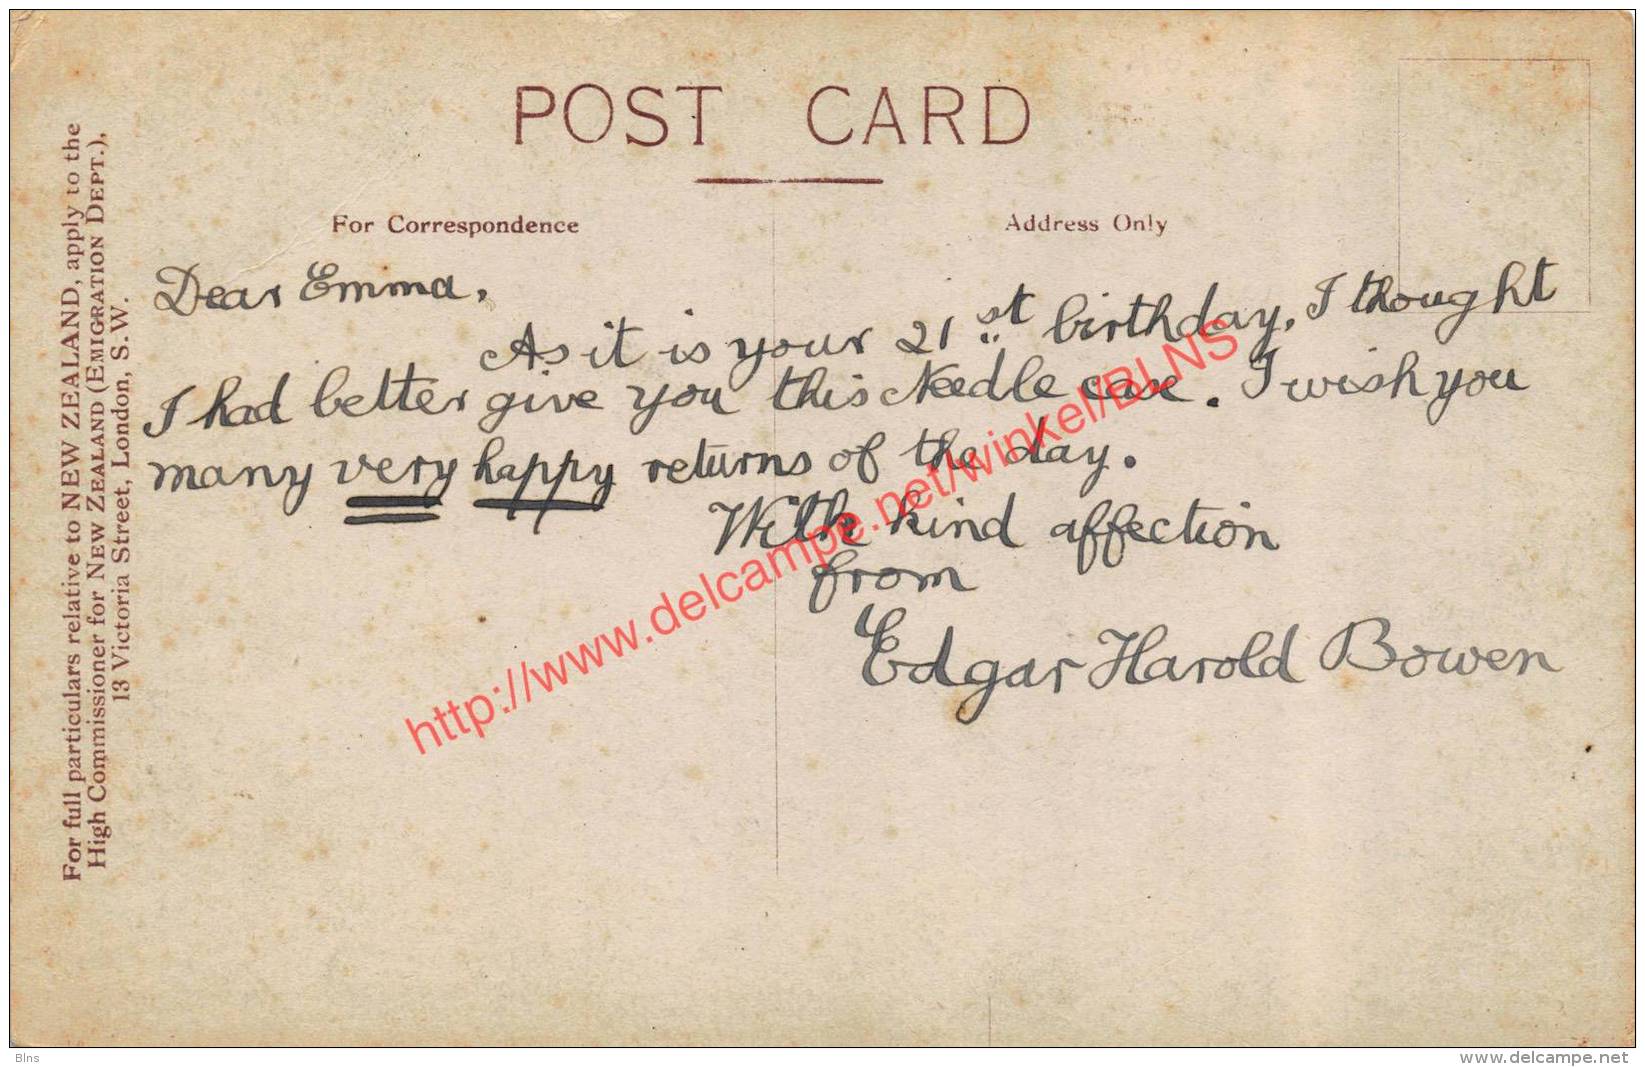 POST CARD
For Correspondence
Address Only
For full particulars relative to NEW ZEALAND, apply to the
High Commissioner for NEW ZEALAND (EMIGRATION DEPT.),
13 Victoria Street, London, S.W.
Dear Emma,
As it is your 21st birthday, I thought
I had better give you this Needle case. I wish you
many very happy returns of the day.
With kind affection
from
Edgar Harold Bowen
http://www.delcampe.net/winkel/BLNS
Blns
www.delcampe.net